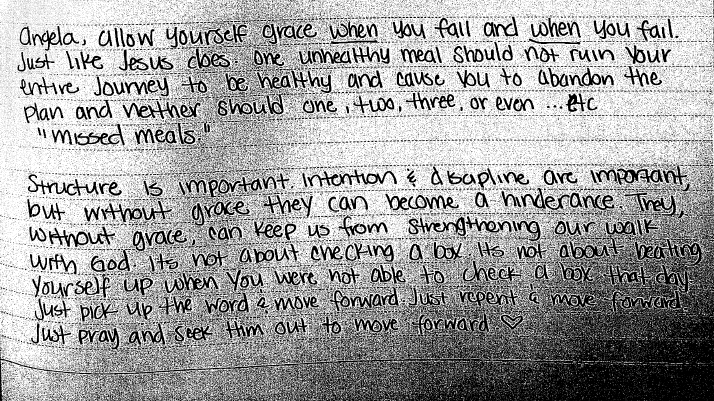 Angela, allow yourself grace when you fall and when you fail.
Just like Jesus does. One unhealthy meal should not ruin your
entire journey to be healthy and cause you to abandon the
plan and neither should one, two, three, or even ... etc
"missed meals."
Structure is important. Intention & discipline are important,
but without grace they can become a hinderance. They,
without grace, can keep us from strengthening our walk
with God. Its not about checking a box. Its not about beating
yourself up when you were not able to check a box that day.
Just pick up the word & move forward. Just repent & move forward.
Just pray and seek Him out to move forward ♡